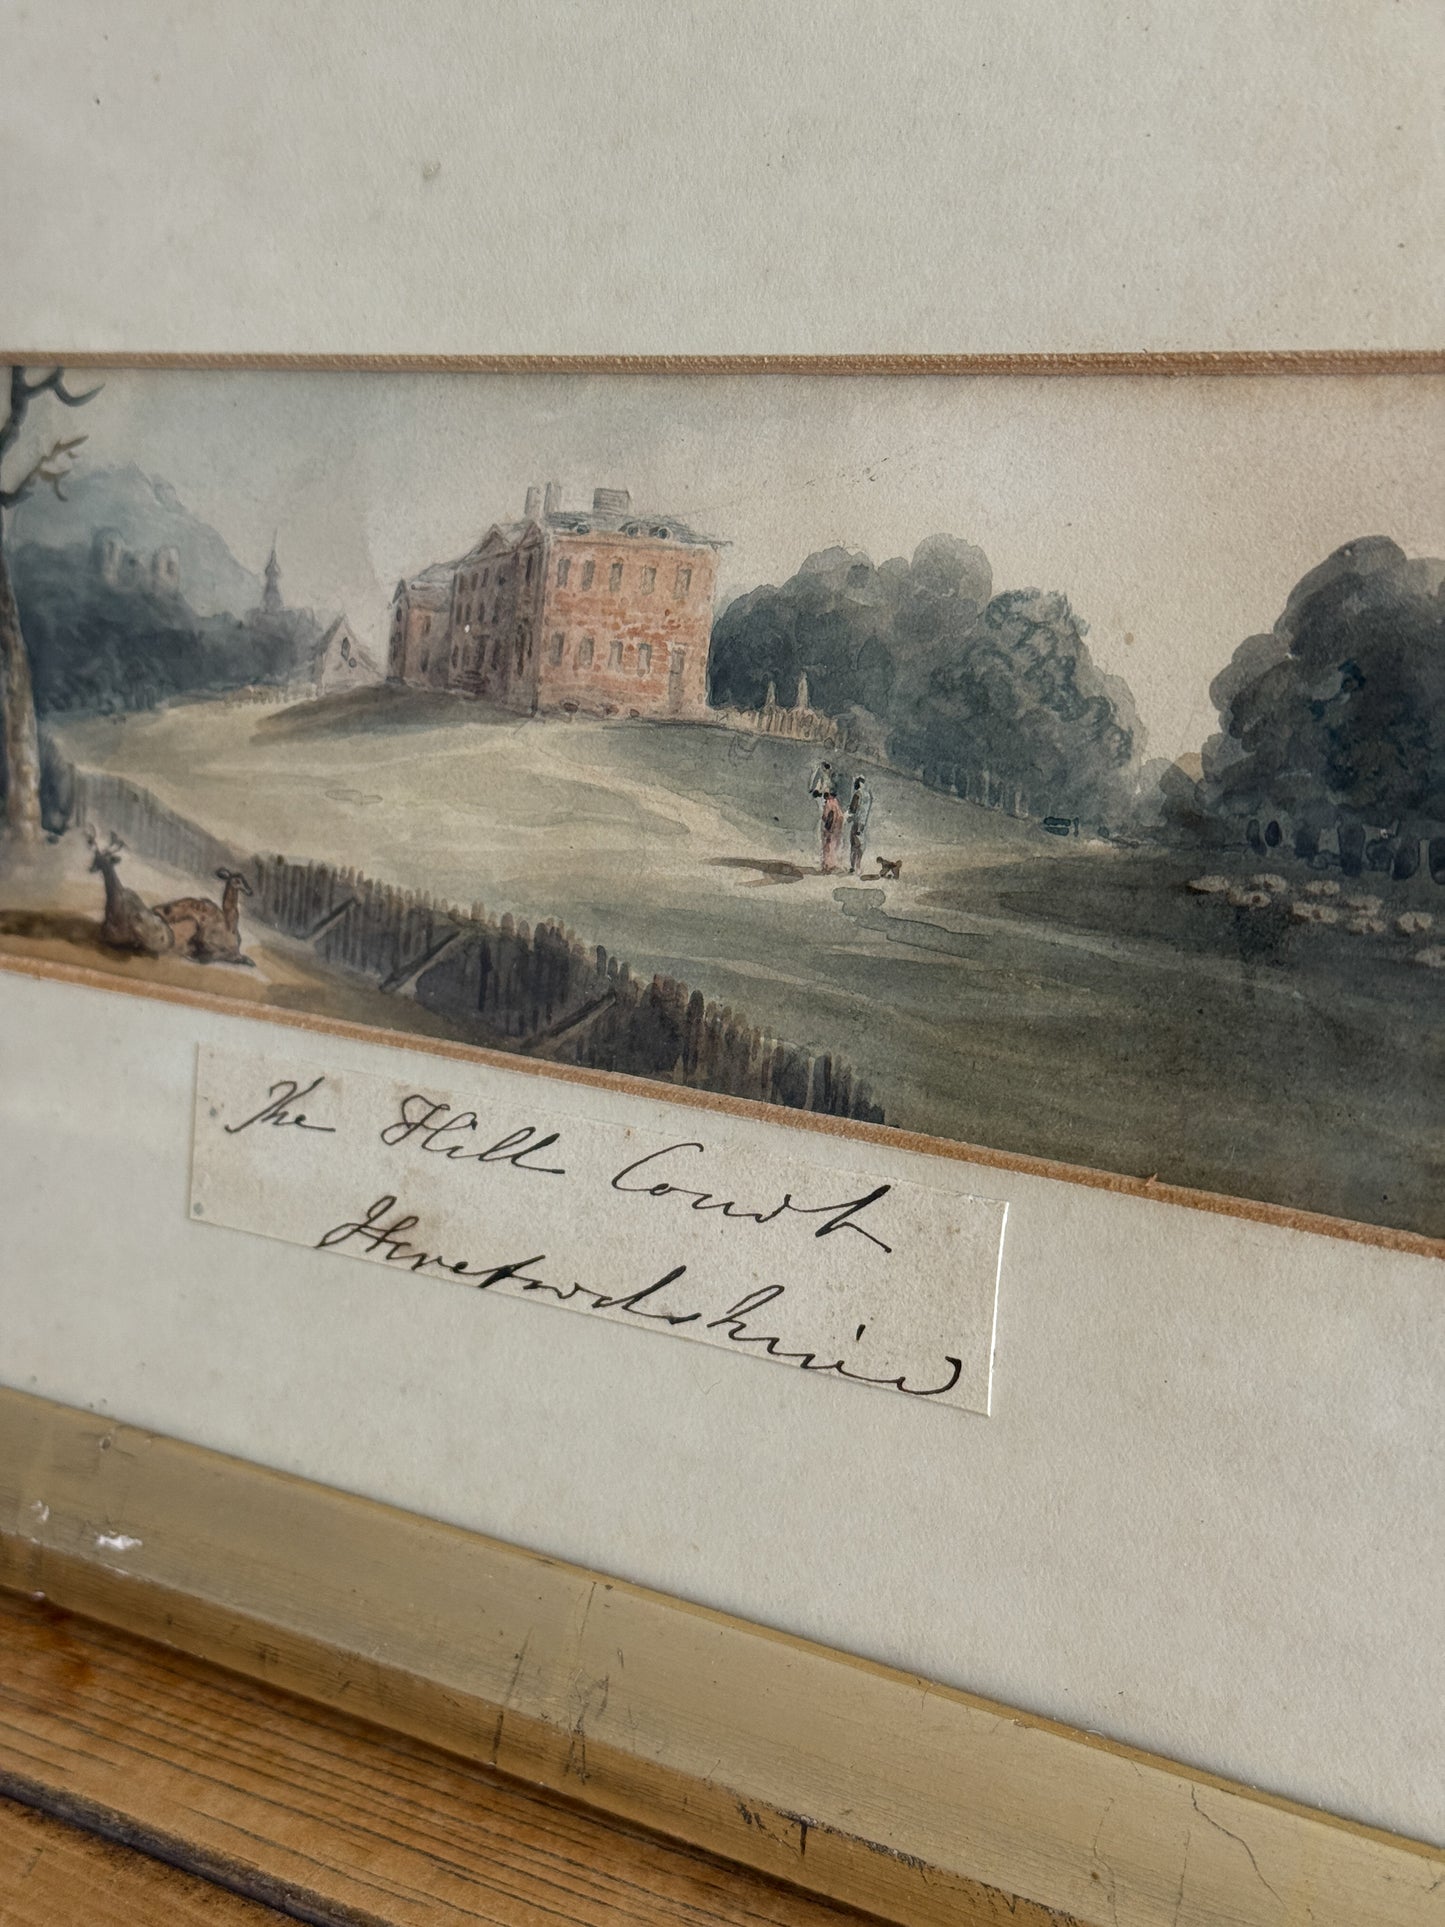 The Hill Court
Herefordshire